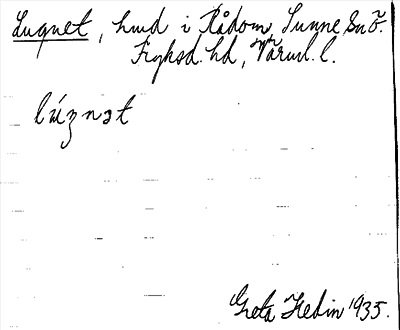 Luqnet, hmd i Rådom, Sunne sn Ö.
Fryksd. hd, Värml. l.
lúʒnət
Greta Hedin 1935.